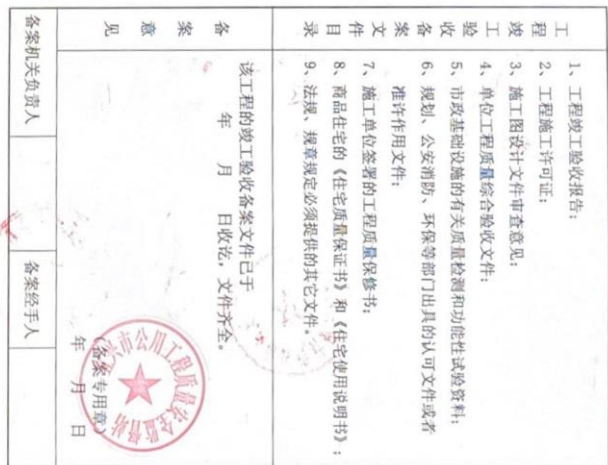 工程竣工验收备案文件目录
1、工程竣工验收报告；
2、工程施工许可证；
3、施工图设计文件审查意见；
4、单位工程质量综合验收文件；
5、市政基础设施的有关质量检测和功能性试验资料；
6、规划、公安消防、环保等部门出具的认可文件或者
准许作用文件；
7、施工单位签署的工程质量保修书；
8、商品住宅的《住宅质量保证书》和《住宅使用说明书》；
9、法规、规章规定必须提供的其它文件。
备案意见
该工程的竣工验收备案文件已于
年 月 日收讫，文件齐全。
兴市公用工程质量安全监督站
（备案专用章）
年 月 日
备案机关负责人
备案经手人